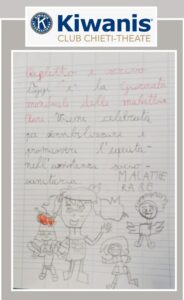 Kiwanis
CLUB CHIETI-THEATE
Rifletto e scrivo
Oggi è la Giornata
mondiale delle malattie
rare. Viene celebrata
per sensibilizzare e
promuovere l'equità
nell'assistenza socio-
sanitaria.
MALATTIE
RARE